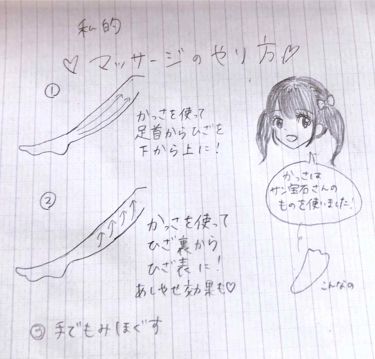 私的
♡マッサージのやり方♡
①
かっさを使って
足首からひざを
下から上に!
かっさは
サン宝石さんの
ものを使いました!
こんなの
②
かっさを使って
ひざ裏から
ひざ表に!
あしやせ効果も♡
③手でもみほぐす